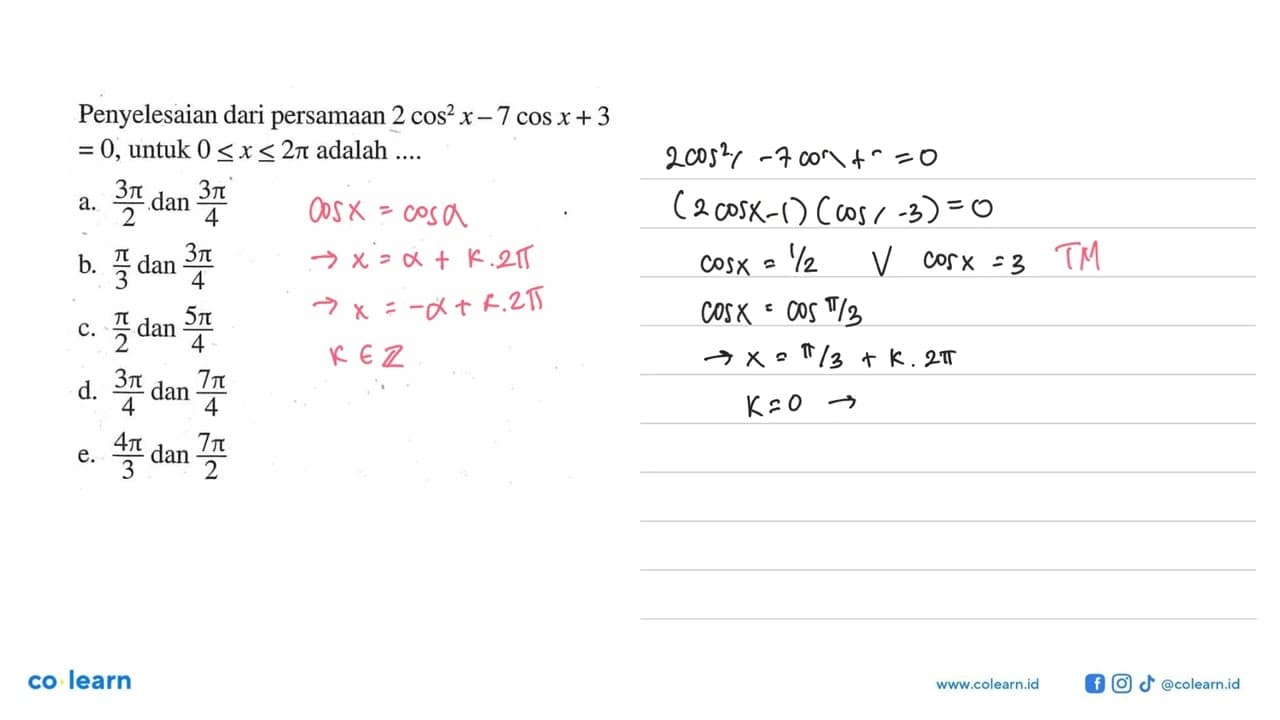 Penyelesaian dari persamaan 2 cos² x – 7 cos x + 3
= 0, untuk 0 ≤ x ≤ 2π adalah ....
a. 3π/2 dan 3π/4
b. π/3 dan 3π/4
c. π/2 dan 5π/4
d. 3π/4 dan 7π/4
e. 4π/3 dan 7π/2
cos x = cos α
→ x = α + k.2π
→ x = -α + k.2π
k ∈ ℤ
2cos² -7 cos + = 0
(2 cos x-1) (cos -3) = 0
cos x = 1/2 V cos x = 3 TM
cos x = cos π/3
→ x = π/3 + k. 2π
k=0 →
co learn
www.colearn.id
@colearn.id